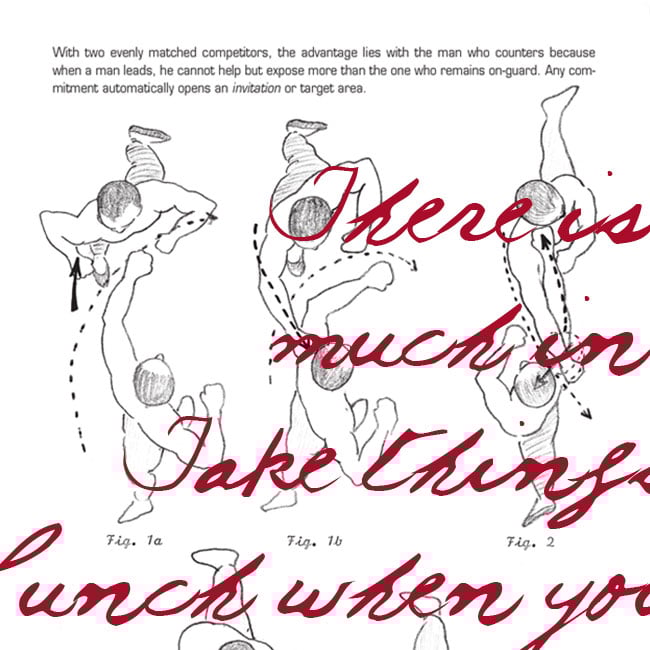 With two evenly matched competitors, the advantage lies with the man who counters because
when a man leads, he cannot help but expose more than the one who remains on-guard. Any com-
mitment automatically opens an invitation or target area.
There is
much in
Take things
Fig. 1a Fig. 1b Fig. 2
unch when you